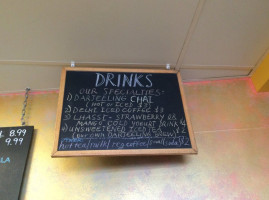 DRINKS
OUR SPECIALTIES:
1) DARJEELING CHAI
(HOT or ICED $3
2) DELHI ICED COFFEE $3
3) LHASSI - STRAWBERRY $3
MANGO COLD YOGURT DRINK $4
4) UNSWEETENED ICED TEA $2
(our own DARJEELING
hot tea/milk/reg coffee/
8.99
9.99
LA